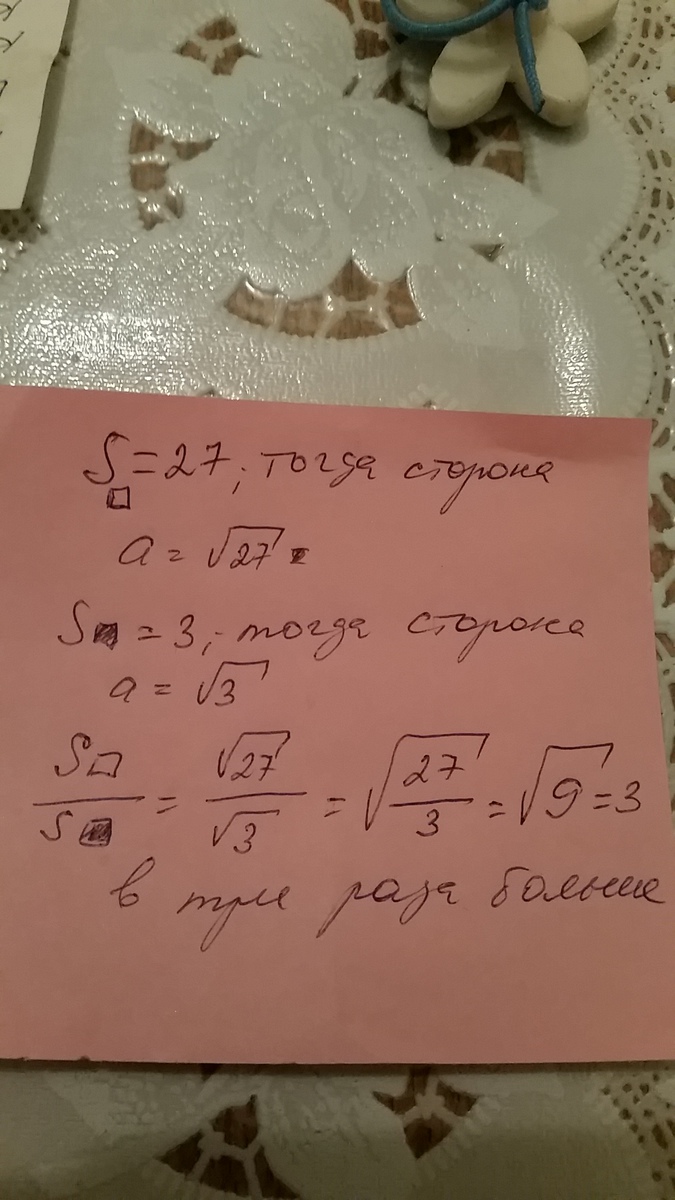 S□ = 27; тогда сторона
a = √27
S■ = 3; тогда сторона
a = √3
S□/S■ = √27/√3 = √(27/3) = √9 = 3
в три раза больше